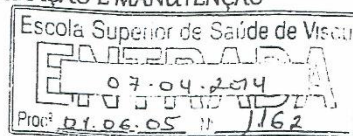 E MANUTENÇÃO
Escola Superior de Saúde de Viseu
ENTRADA
07.04.2014
Procº 01.06.05 nº 1162